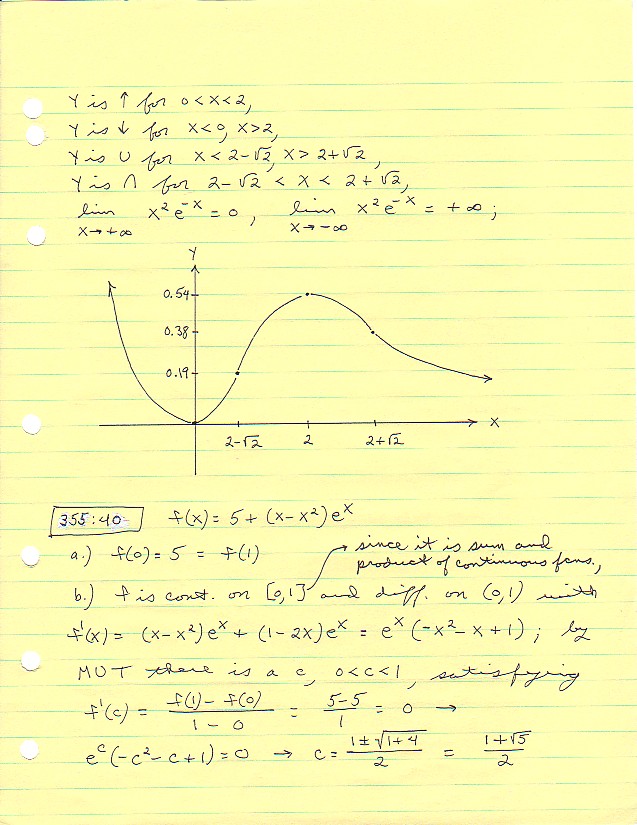 Y is ↑ for 0<x<2,
Y is ↓ for x<0, x>2,
Y is ∪ for x<2-√2, x>2+√2,
Y is ∩ for 2-√2 < x < 2+√2,
lim x→+∞ x²e^-x = 0, lim x→-∞ x²e^-x = +∞;
Y
0.54
0.38
0.19
X
2-√2 2 2+√2
355:40 f(x) = 5 + (x-x²)e^x
a.) f(0) = 5 = f(1)
since it is sum and
product of continuous fcns.,
b.) f is cont. on [0,1] and diff. on (0,1) with
f'(x) = (x-x²)e^x + (1-2x)e^x = e^x(-x²-x+1); by
MVT there is a c, 0<c<1, satisfying
f'(c) = (f(1)-f(0))/(1-0) = (5-5)/1 = 0 →
e^c(-c²-c+1)=0 → c = (1±√(1+4))/2 = (1+√5)/2